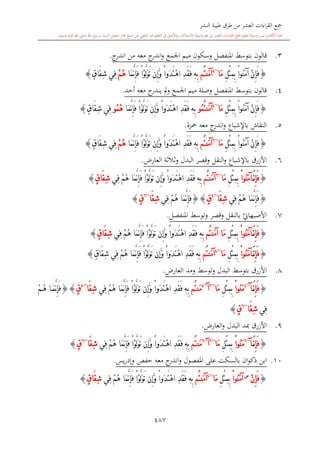 جمع القراءات العشر من طرق طيبة النشر
٣. قالون بتوسط المنفصل وسكون ميم الجمع واندرج معه من اندرج.
﴿ فَإِنْ ءَامَنُوا۟ بِمِثْلِ مَآ ءَامَنتُم بِهِۦ فَقَدِ ٱهْتَدَوا۟ وَّإِن تَوَلَّوْا۟ فَإِنَّمَا هُمْ فِى شِقَاقٍ ﴾
٤. قالون بتوسط المنفصل وصلة ميم الجمع ولم يندرج معه أحد.
﴿ فَإِنْ ءَامَنُوا۟ بِمِثْلِ مَآ ءَامَنتُمُو بِهِۦ فَقَدِ ٱهْتَدَوا۟ وَّإِن تَوَلَّوْا۟ فَإِنَّمَا هُمُو فِى شِقَاقٍ ﴾
٥. النقاش بالإشباع واندرج معه حمزة.
﴿ فَإِنْ ءَامَنُوا۟ بِمِثْلِ مَآ ءَامَنتُم بِهِۦ فَقَدِ ٱهْتَدَوا۟ وَّإِن تَوَلَّوْا۟ فَإِنَّمَا هُمْ فِى شِقَاقٍ ﴾
٦. الأزرق بالإشباع والنقل وقصر البدل وثلاثة العارض.
﴿ فَإِنَ امَنُوا۟ بِمِثْلِ مَآ ءَامَنتُم بِهِۦ فَقَدِ ٱهْتَدَوا۟ وَّإِن تَوَلَّوْا۟ فَإِنَّمَا هُمْ فِى شِقَاقٍ ﴾
﴿ فَإِنَّمَا هُمْ فِى شِقَاقٍ ﴾ ﴿ فَإِنَّمَا هُمْ فِى شِقَاقٍ ﴾
٧. الأصبهاني بالنقل وقصر وتوسط المنفصل.
﴿ فَإِنَ امَنُوا۟ بِمِثْلِ مَآ ءَامَنتُم بِهِۦ فَقَدِ ٱهْتَدَوا۟ وَّإِن تَوَلَّوْا۟ فَإِنَّمَا هُمْ فِى شِقَاقٍ ﴾
﴿ فَإِنَ امَنُوا۟ بِمِثْلِ مَآ ءَامَنتُم بِهِۦ فَقَدِ ٱهْتَدَوا۟ وَّإِن تَوَلَّوْا۟ فَإِنَّمَا هُمْ فِى شِقَاقٍ ﴾
٨. الأزرق بتوسط البدل وتوسط ومد العارض.
﴿ فَإِنَ امَنُوا۟ بِمِثْلِ مَآ ءَامَنتُم بِهِۦ فَقَدِ ٱهْتَدَوا۟ وَّإِن تَوَلَّوْا۟ فَإِنَّمَا هُمْ فِى شِقَاقٍ ﴾ ﴿ فَإِنَّمَا هُمْ
فِى شِقَاقٍ ﴾
٩. الأزرق بمد البدل والعارض.
﴿ فَإِنَ امَنُوا۟ بِمِثْلِ مَآ ءَامَنتُم بِهِۦ فَقَدِ ٱهْتَدَوا۟ وَّإِن تَوَلَّوْا۟ فَإِنَّمَا هُمْ فِى شِقَاقٍ ﴾
١٠. ابن ذكوان بالسكت على المفصول واندرج معه حفص وإدريس.
﴿ فَإِنْ ءَامَنُوا۟ بِمِثْلِ مَآ ءَامَنتُم بِهِۦ فَقَدِ ٱهْتَدَوا۟ وَّإِن تَوَلَّوْا۟ فَإِنَّمَا هُمْ فِى شِقَاقٍ ﴾
٤٨٧